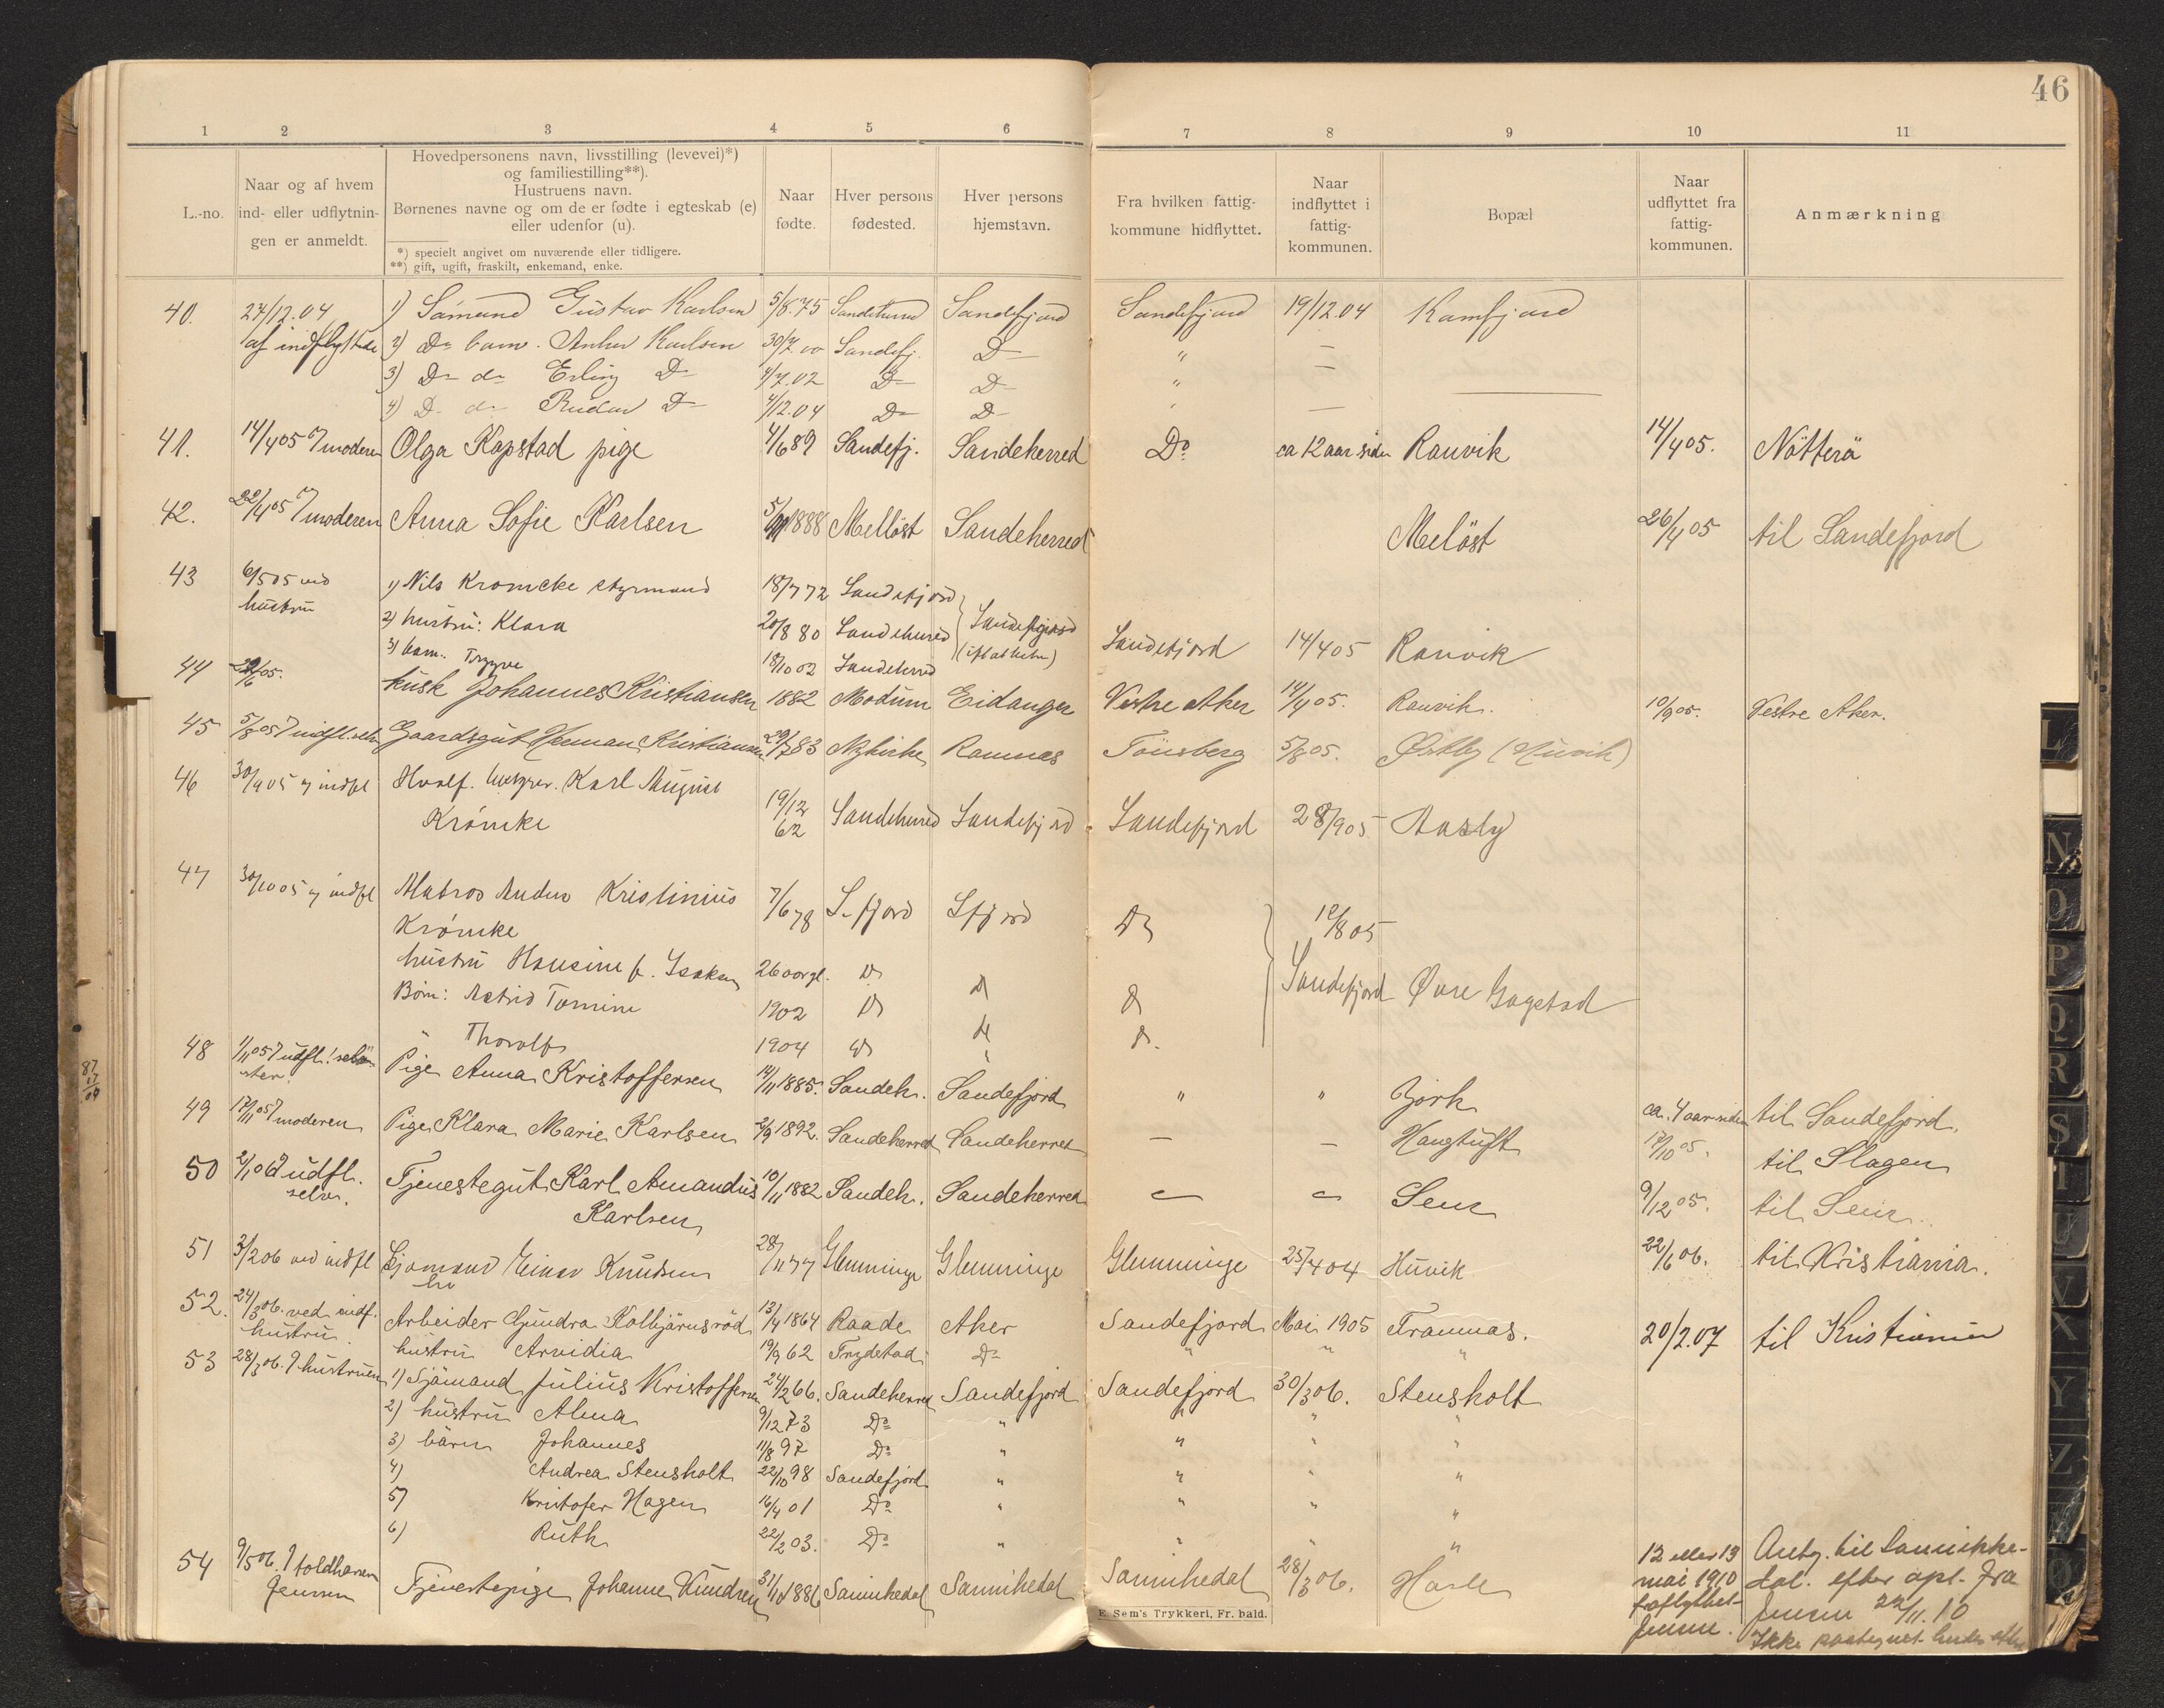 46
1 2 3 4 5 6 7 8 9 10 11
L.-no.
Naar og af hvem
ind- eller udflytnin-
gen er anmeldt.
Hovedpersonens navn, livsstilling (levevei)*)
og familiestilling**).
Hustruens navn.
Børnenes navne og om de er fødte i egteskab (e)
eller udenfor (u).
*) specielt angivet om nuværende eller tidligere.
**) gift, ugift, fraskilt, enkemand, enke.
Naar
fødte.
Hver persons
fødested.
Hver persons
hjemstavn.
Fra hvilken fattig-
kommune hidflyttet.
Naar
indflyttet i
fattig-
kommunen.
Bopæl
Naar
udflyttet fra
fattig-
kommunen.
Anmærkning
40. 27/12.04 1) Sømand Gustav Karlsen 5/8.75 Sandeherred Sandefjord Sandefjord 19/12.04 Kamfjord
af indflyttede 2) Ds barn. Arthur Karlsen 30/7.00 Sandefj. D — " —
3) D do Erling D 4/7.02 D D " —
4) D do D 4/12.04 D D " —
41. 14/4 05 moderen Olga Kapstad pige 4/6 89 Sandefj. Sandeherred Do ca 12 aar siden Ranvik 14/4 05. Nötterö
42. 22/4 05 moderen Anna Sofie Karlsen 5/ 1888 Mellöst Sandeherred Melöst 26/4 05 til Sandefjord
43 6/5 05 ved 1) Nils Kromcke styrmand 18/7 72 Sandefjord
hustru 2) hustru: Klara 20/8 80 Sandeherred Sandefjord Sandefjord 14/4 05 Ranvik
3) barn. Trygve 18/10 02 Sandeherred
44 /6 05. kusk Johannes Kristiansen 1882 Modum Eidanger Vestre Aker 14/4 05. Ranvik. 10/9 05. Vestre Aker.
45 5/8 05 indfl. selv Gaardsgut Herman Kristiansen 29/7 83 Nykirke Ramnes Tönsberg 5/8 05. Østby (Huvik)
46 30/9 05 indfl Karl August
Krömke 19/12 62 Sandeherred Sandefjord Sandefjord 28/9 05 Aasly
47 30/10 05 indfl Matros Anders Kristinius 7/6 78 S.fjord Sfjord D 12/8 05
Krömke
hustru Hansine f. Isaksen 26 aar gl. D D
Börn: Astrid Tomine 1902 D D D Sandefjord Øvre Gogstad
Thorolf 1904 D D D.
48 1/11 05 udfl. Pige Anna Kristoffersen 14/11 1885. Sandeh. Sandefjord " " Bjørk ca. 4 aar siden til Sandefjord.
49 17/11 05 moderen Pige Klara Marie Karlsen 2/9 1892. Sandeherred Sandeherred — — Haugtuft 17/10 05. til Slagen
50 2/1 06 udfl. Tjenestegut Karl Amandus 10/11 1882 Sandeh. Sandeherred — — Sem 9/12 05. til Sem.
selv. Karlsen
51 3/2 06 ved indfl Sjömand Einar Knudsen 28/11 77 Glemminge Glemminge Glemminge 25/4 04 Huvik 22/6 06. til Kristiania.
52. 24/3 06. ved indf. Arbeider Gundro Kolbjørnsröd 13/4 1864 Raade Aker Sandefjord Mai 1905 Framnæs. 20/2.07 til Kristiania
hustru hustru Arvidia 19/9 62 Do " " "
53 28/3 06. hustruen 1) Sjömand Julius Kristoffersen 24/2 66. Sandeherred Sandefjord Sandefjord 30/3 06. Stensholt
2) hustru Alma 9/12 73 Do " " " "
3) börn Johannes 11/8 97 Do " " " "
4) Andrea Stensholt 22/10 98 Sandefjord " " " "
5) Kristofer Hagen 16/4 01 Do " " " "
6) Ruth 22/2 03. Do " " " "
54 9/5 06. toldbetjent Tjenestepige Johanne Knudsen 31/ 1886 Sannikedal Sannikedal Sannikedal 28/3 06. Hasle 12 eller 13 Antg. til Sannikke-
Jensen mai 1910 dal. efter opl. fra
fraflyttet Jensen 22/11.10
Jensen. Ikke
E. Sem's Trykkeri, Fr. hald.
L N O P Q R S T U V X Y Z Ø